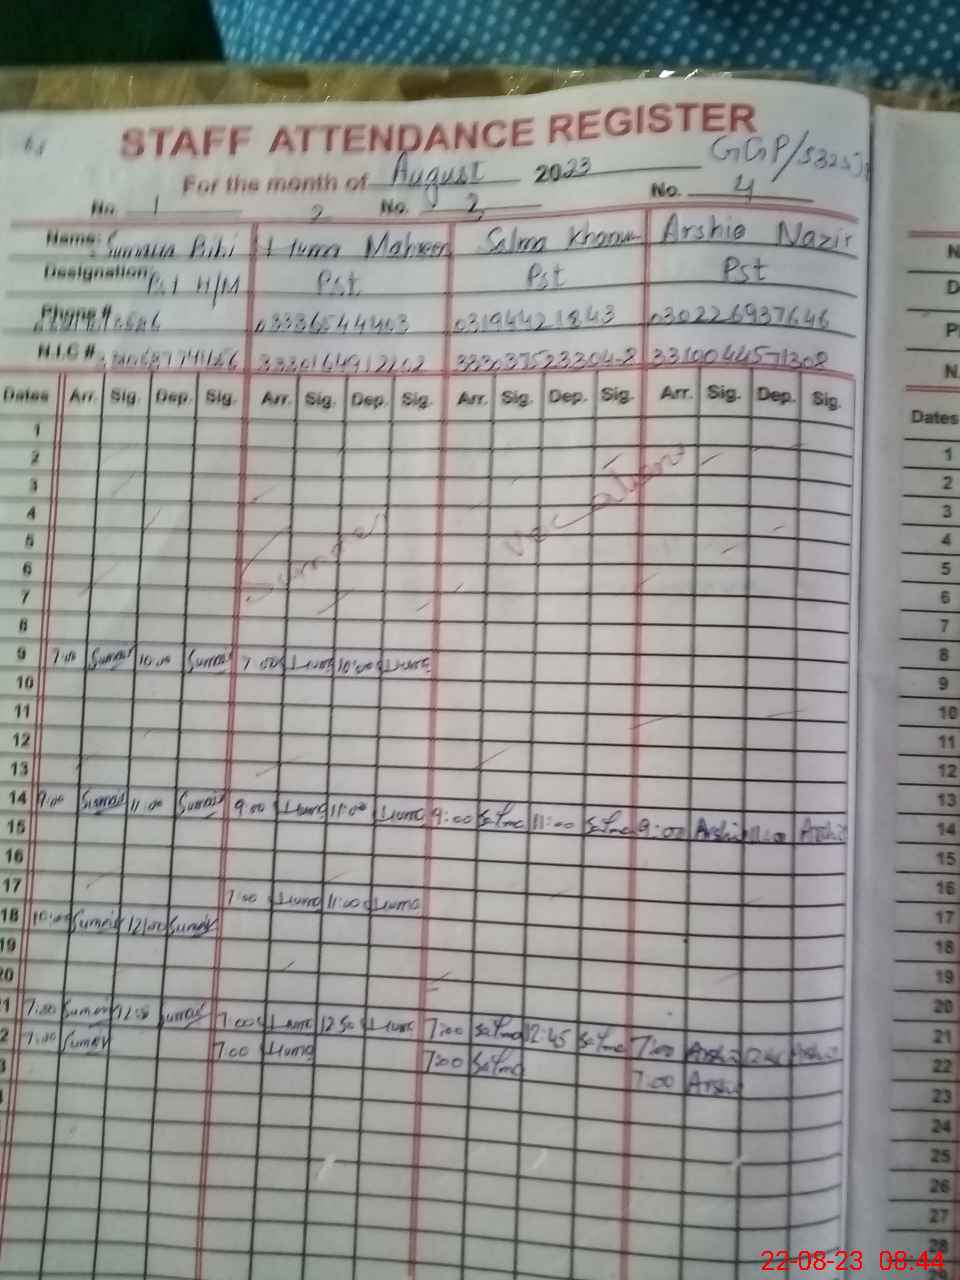 STAFF ATTENDANCE REGISTER
GGP/5325
For the month of August 2023
No. 1 2 No. 3 No. 4
Name: Sumaira Bibi Huma Mahreen Salma Khanum Arshia Nazir
Designation Pst H/M Pst Pst Pst
Phone # 03336544403 03194421843 030226937646
N.I.C # 3330164912202 333037523304-2 3310044571308
Dates Arr. Sig. Dep. Sig. Arr. Sig. Dep. Sig. Arr. Sig. Dep. Sig. Arr. Sig. Dep. Sig.
1
2
3
4
5
6
7
8
Summer Vacations
9 7:00 Sumaira 10:00 Sumaira 7:00 Huma 10:00 Huma
10
11
12
13
14 9:00 Sumaira 11:00 Sumaira 9:00 Huma 11:00 Huma 9:00 Salma 11:00 Salma 9:00 Arshia 11:00 Arshia
15
16
17 7:00 Huma 11:00 Huma
18 10:00 Sumaira 12:00 Sumaira
19
20
21 7:00 Sumaira Sumaira 7:00 Huma 12:50 Huma 7:00 Salma 12:45 Salma 7:00 Arshia Arshia
22 7:00 Sumaira 7:00 Huma 7:00 Salma 7:00 Arshia
Dates
1
2
3
4
5
6
7
8
9
10
11
12
13
14
15
16
17
18
19
20
21
22
23
24
25
26
27
28
22-08-23 08:44